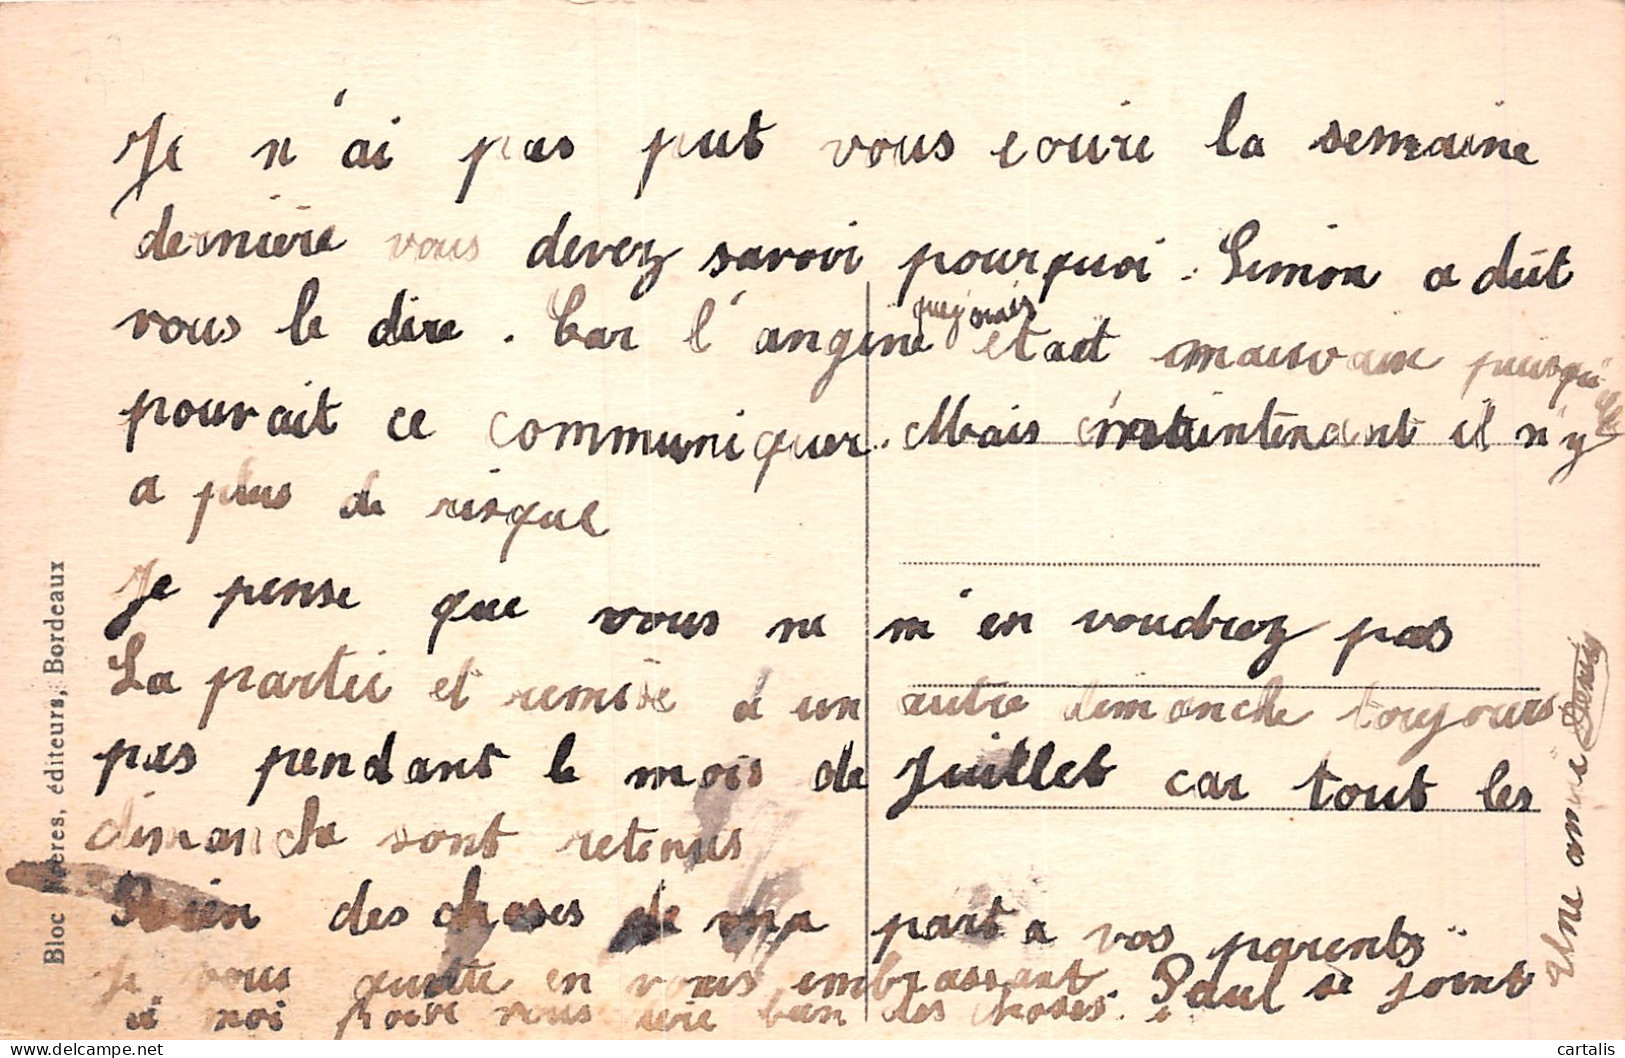 Je n'ai pas put vous ecrire la semaine
dernière vous devez savoir pourquoi. Simon a dût
vous le dire. Car l'angine que j'avais etait mauvaise puisqu'elle
pourait ce communiquer. Mais maintenant il n'y
a plus de risque
Je pense que vous ne m'en voudrez pas
La partie et remise a un autre dimanche toujours
pas pendant le mois de Juillet car tout les
dimanche sont retenus
Bien des choses de ma part a vos parents
Je vous quitte en vous embrassant. Paul se joint
a moi pour vous dire bien des choses.
Une amie Denise
Bloc Frères, éditeurs, Bordeaux
cartalis